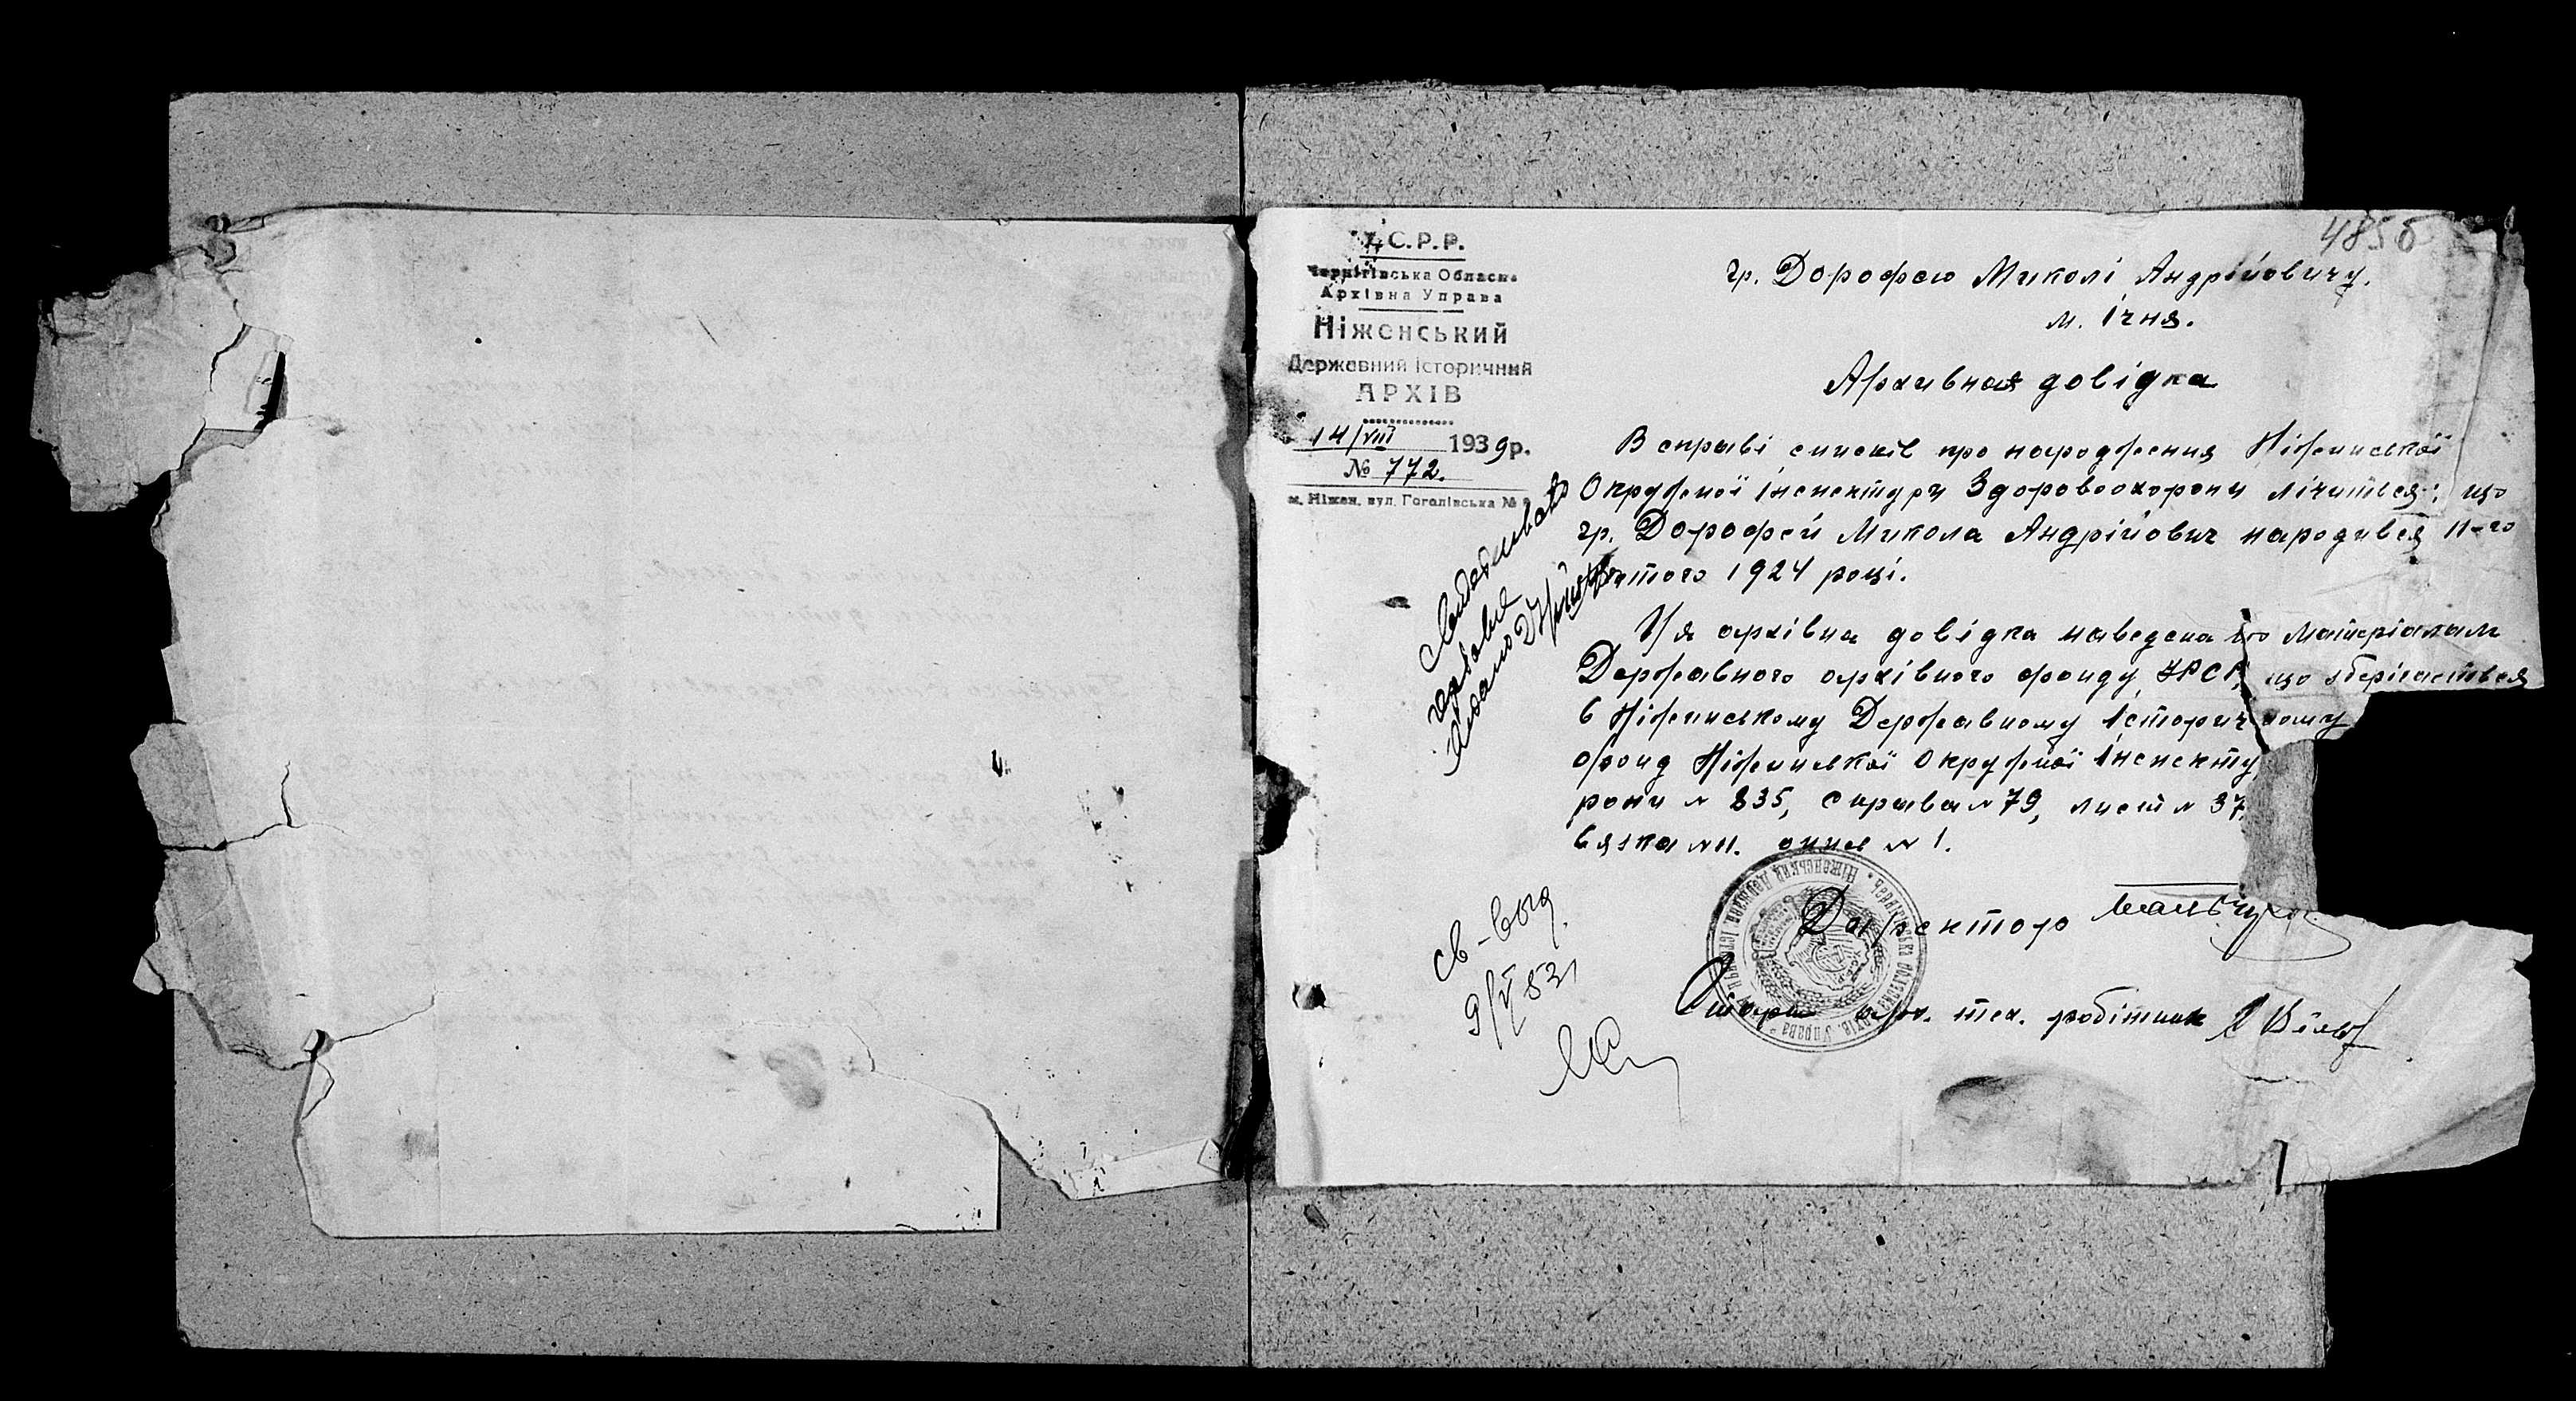 485б
У.С.Р.Р.
Чернігівська Обласна
Архівна Управа
Ніженський
Державний історичний
АРХІВ
14/VIII 1939р.
№ 772.
м. Ніжен, вул. Гоголівська №
гр. Дорофею Миколі Андрійовичу.
м. Ічня.
Архивная довідка
В справі списків про народження Ніженської
Окружної інспектури Здоровоохорони лічиться: що
гр. Дорофей Микола Андрійович народився 11-го
лютого 1924 році.
Ця архівна довідка наведена по матеріалам
Державного архівного фонду УРСР, що зберігається
в Ніженському Державному Історичному
фонд Ніженської Окружної Інспекту
рони № 835, справа № 79, лист № 37,
вязка № 11. опис № 1.
Директор
Старш арх. тех. робітник
св-выд
9/V 53